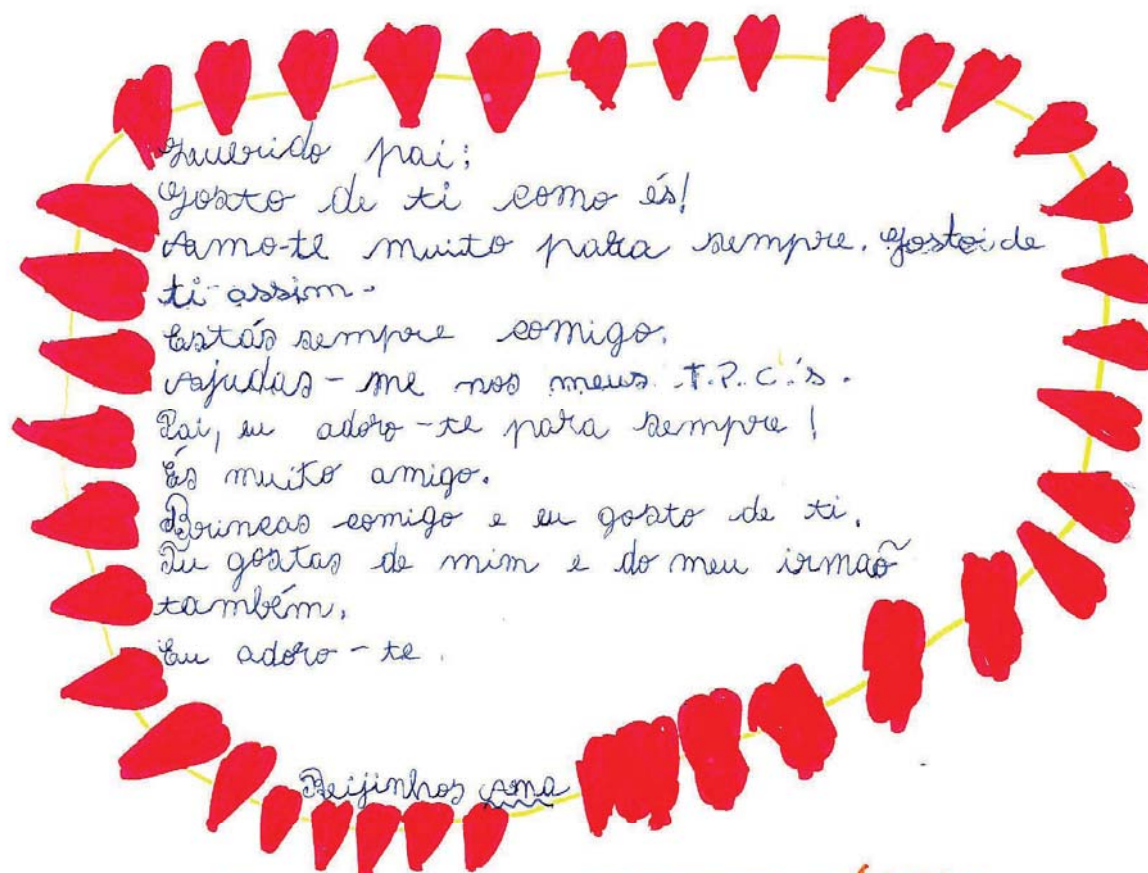 Querido pai;
Gosto de ti como és!
Amo-te muito para sempre. Gosto de
ti assim.
Estás sempre comigo.
Ajudas-me nos meus T.P.C.'s.
Pai, eu adoro-te para sempre!
És muito amigo.
Brincas comigo e eu gosto de ti.
Tu gostas de mim e do meu irmaõ
também.
Eu adoro-te.
Beijinhos Ana